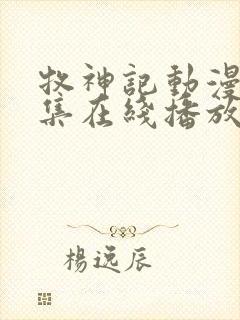 牧神記動漫
集在綫播放
楊逸辰